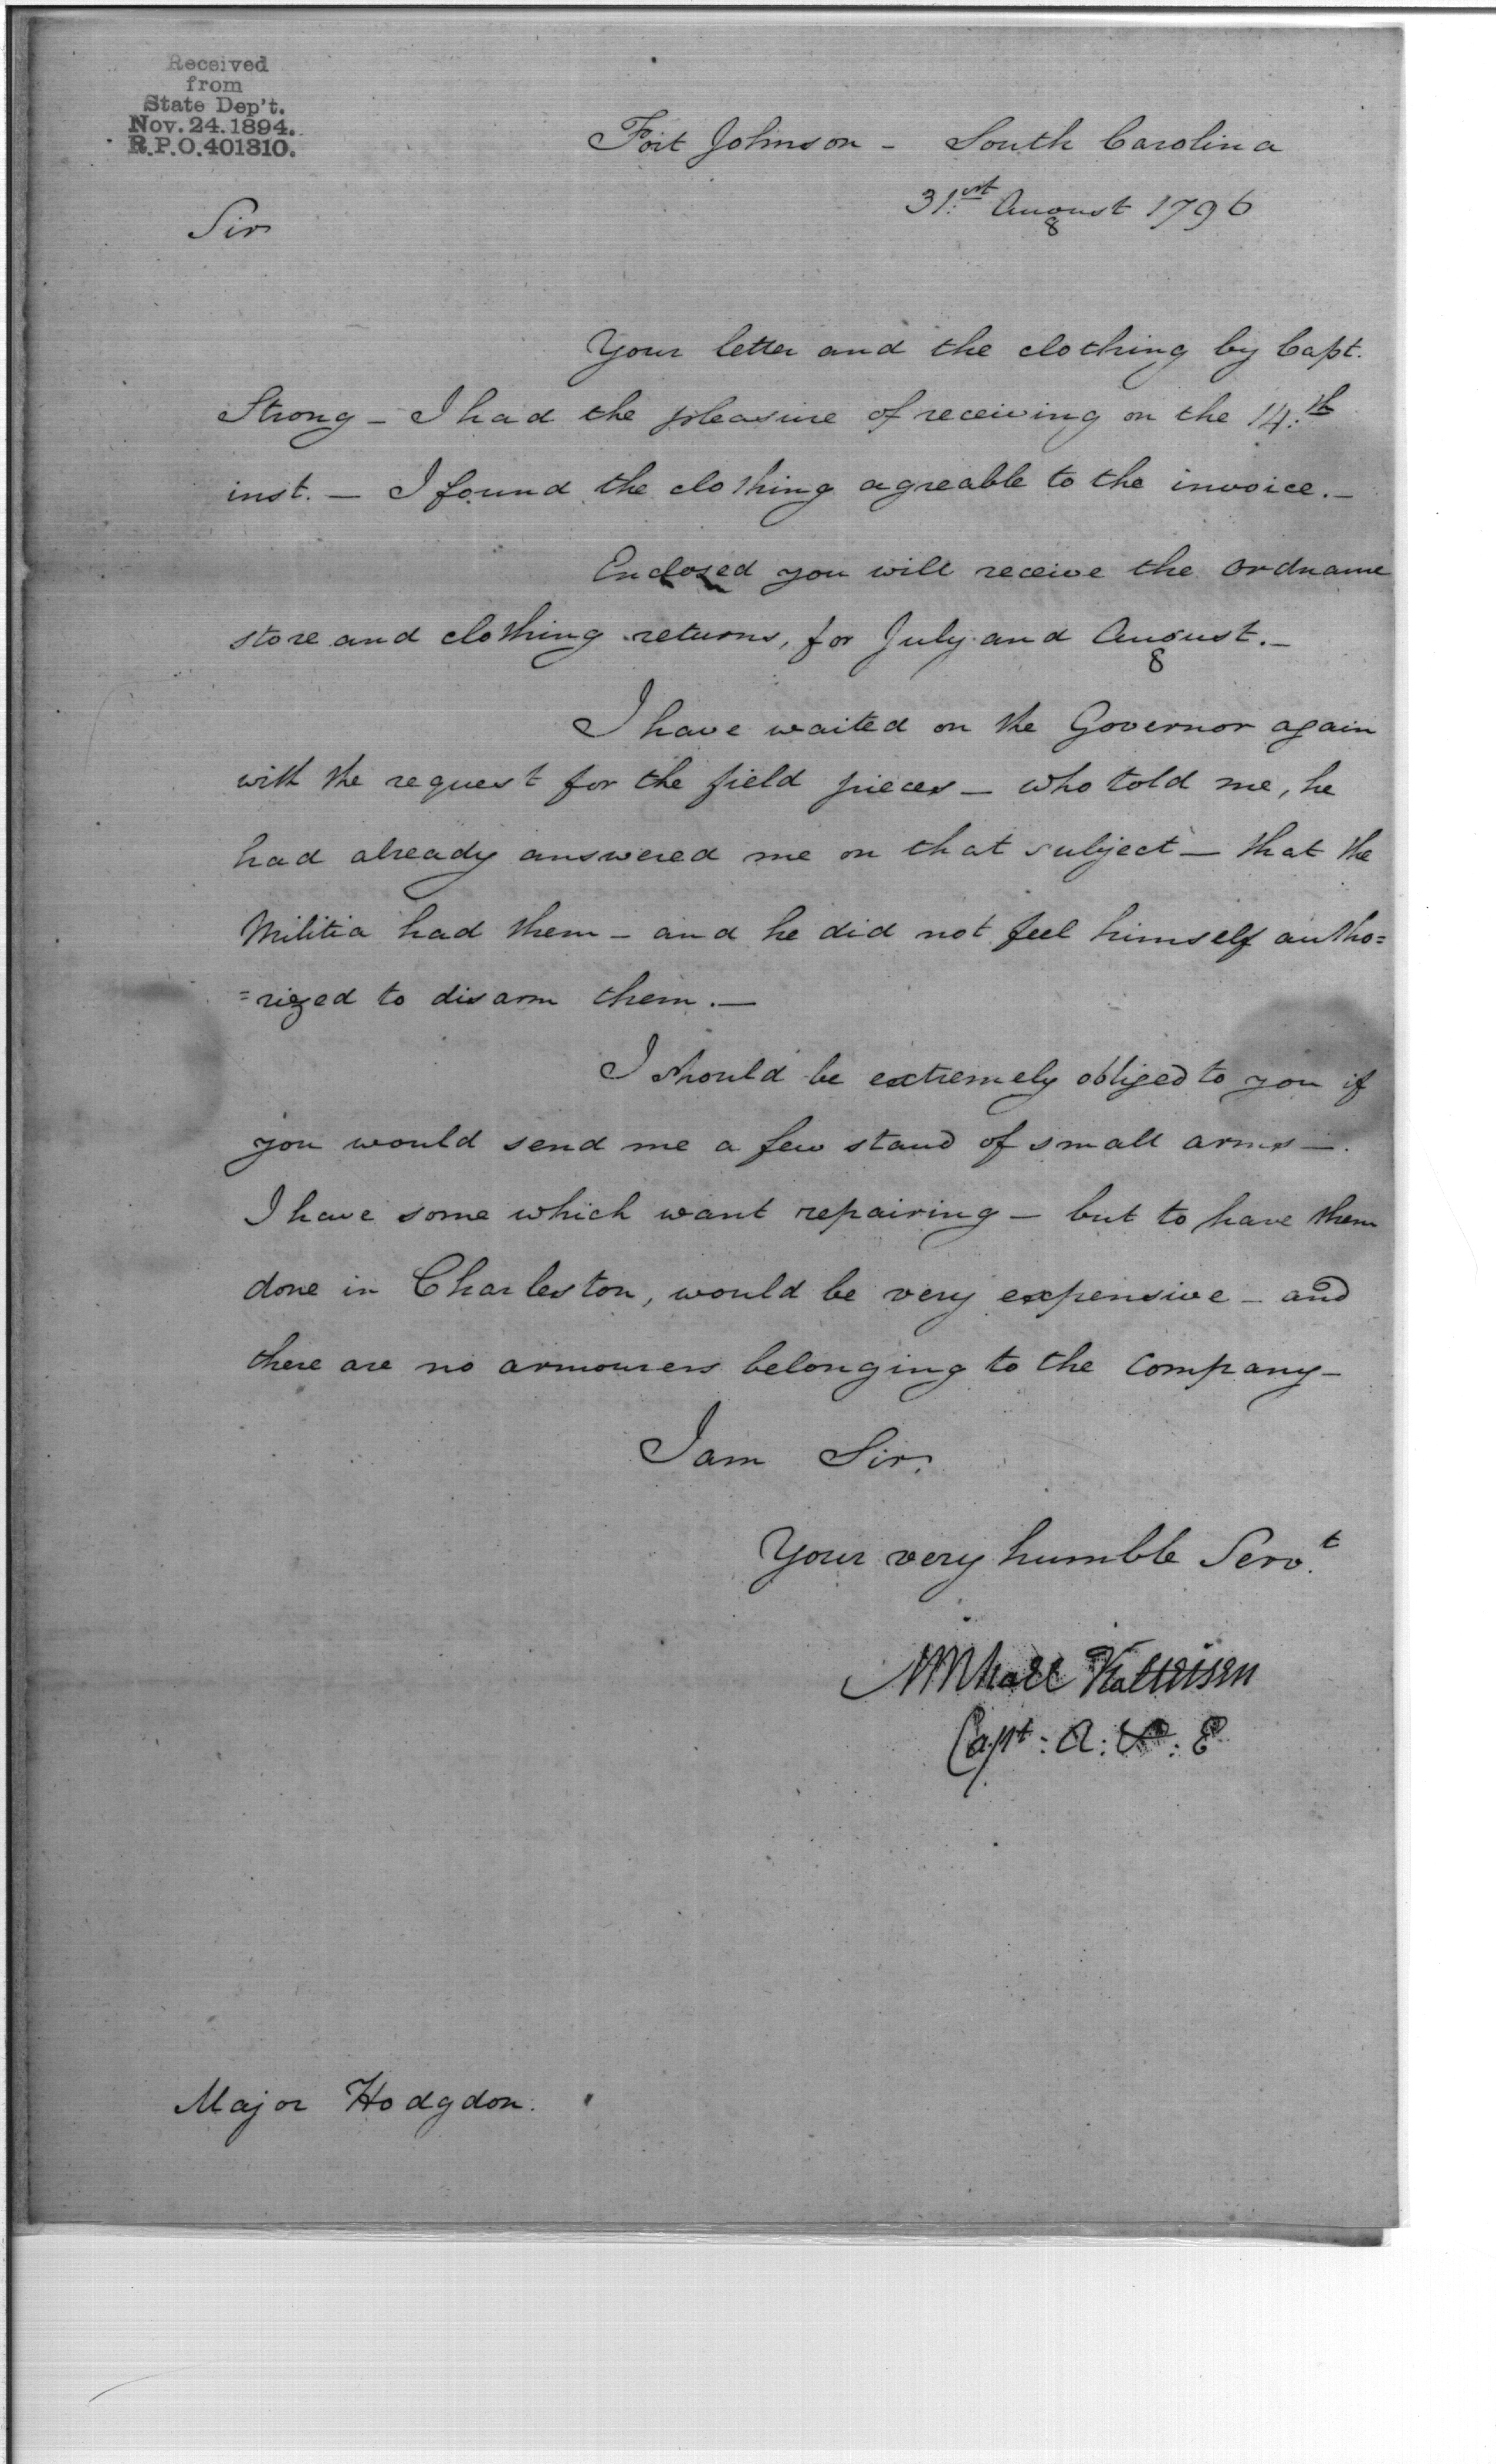 Received
from
State Dep't.
Nov. 24. 1894.
R.P.O. 401310.
Fort Johnson - South Carolina
31.st August 1796
Sir
Your letter and the clothing by Capt.
Strong - I had the pleasure of receiving on the 14.th
inst. - I found the clothing agreable to the invoice. -
Enclosed you will receive the ordnance
store and clothing returns, for July and August. -
I have waited on the Governor again
with the request for the field pieces - who told me, he
had already answered me on that subject - that the
Militia had them - and he did not feel himself autho=
=rized to disarm them. -
I should be extremely obliged to you if
you would send me a few stand of small arms -.
I have some which want repairing - but to have them
done in Charleston, would be very expensive - and
there are no armourers belonging to the company -
I am Sir.
Your very humble Serv.t
Michael Kalteisen
Capt: A: & : E
Major Hodgdon.